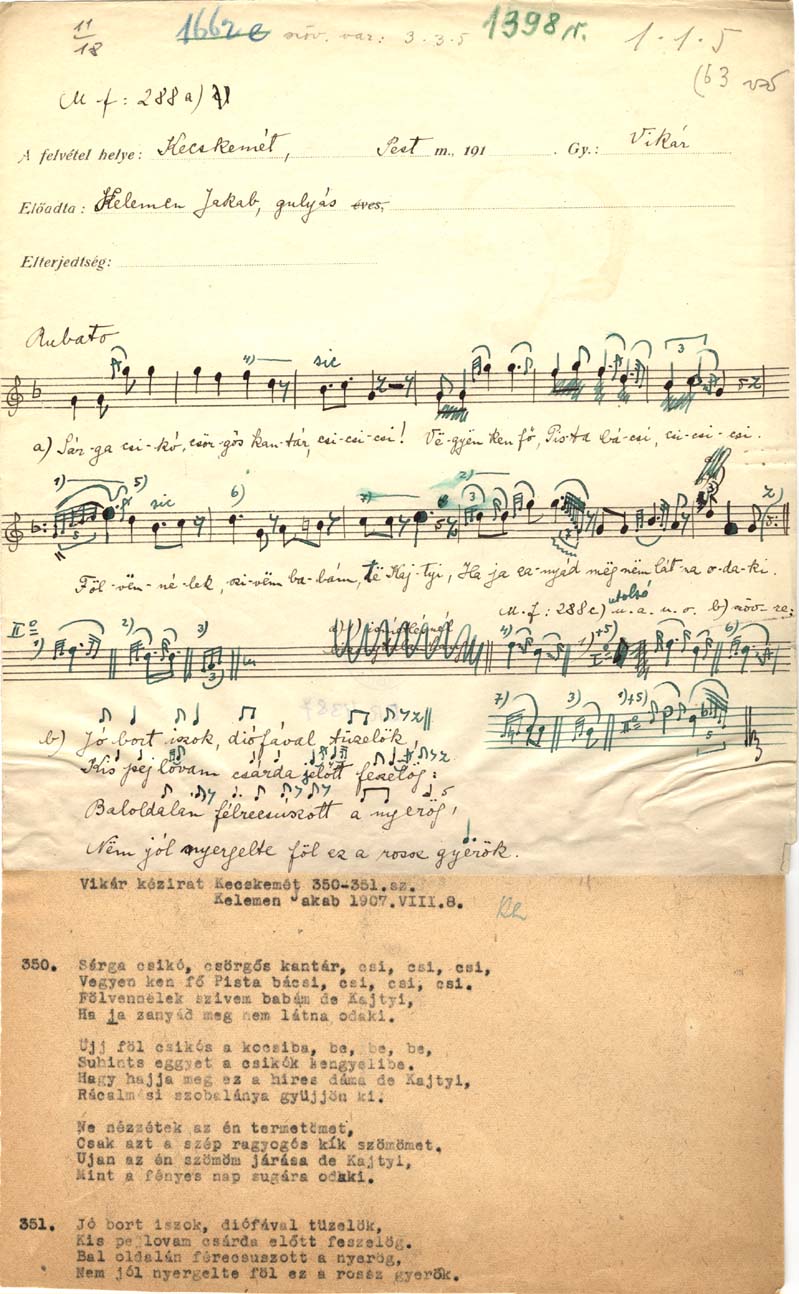 11/18 1662 e szöv. var: 3.3.5 1398 r. 1.1.5
(63
M.f: 288 a)
A felvétel helye: Kecskemét, Pest m., 191 Gy.: Vikár
Előadta: Kelemen Jakab, gulyás éves,
Elterjedtség:
Rubato
4) sic 3
a) Sár-ga csi-kó, csör-gős kan-tár, csi-csi-csi! Vë-gyën ken fő, Pis-ta bá-csi, csi-csi-csi.
1) 5) sic 6) 7) 2) 3
5
Föl-vën-né-lek, szi-vem ba-bám, të Kaj-tyi, Ha ja za-nyád mëg nëm lát-na o-da-ki.
M.f: 288c) utolsó u.a.u.o. b) szöv-re:
IIº 1) 2) 3) 4) 1)+5) Iº 6)
7) 3) 1)+5) IIº
b) Jó bort iszok, diófával tüzelök,
Kis pej lovam csárda jelőtt feszelög:
Baloldalan félrecsúszott a nyerög,
Nëm jól nyergelte föl ez a rossz gyerök.
Vikár kézirat Kecskemét 350-351.sz.
Kelemen Jakab 1907.VIII.8.
350. Sárga csikó, csörgős kantár, csi, csi, csi,
Vegyen ken fő Pista bácsi, csi, csi, csi.
Fölvennélek szivem babám de Kajtyi,
Ha ja zanyád meg nem látna odaki.
Üjj föl csikós a kocsiba, be, be, be,
Suhints eggyet a csikók kengyelibe.
Hagy hajja meg ez a hires dáma de Kajtyi,
Rácalmási szobalánya gyüjjön ki.
Ne nézzétek az én termetömet,
Csak azt a szép ragyogós kík szömömet.
Ujan az én szömöm járása de Kajtyi,
Mint a fényes nap sugára odaki.
351. Jó bort iszok, diófával tüzelök,
Kis pej lovam csárda előtt feszelög.
Bal oldalán férecsuszott a nyerög,
Nem jól nyergelte föl ez a rossz gyerök.